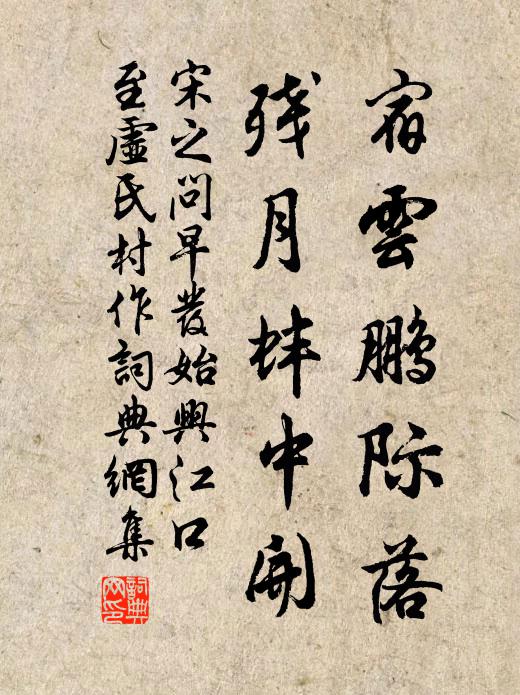 宿雲鵬際落
残月蚌中開
宋之問早發始興江口
至虛氏村作詞典網集
詞典網印